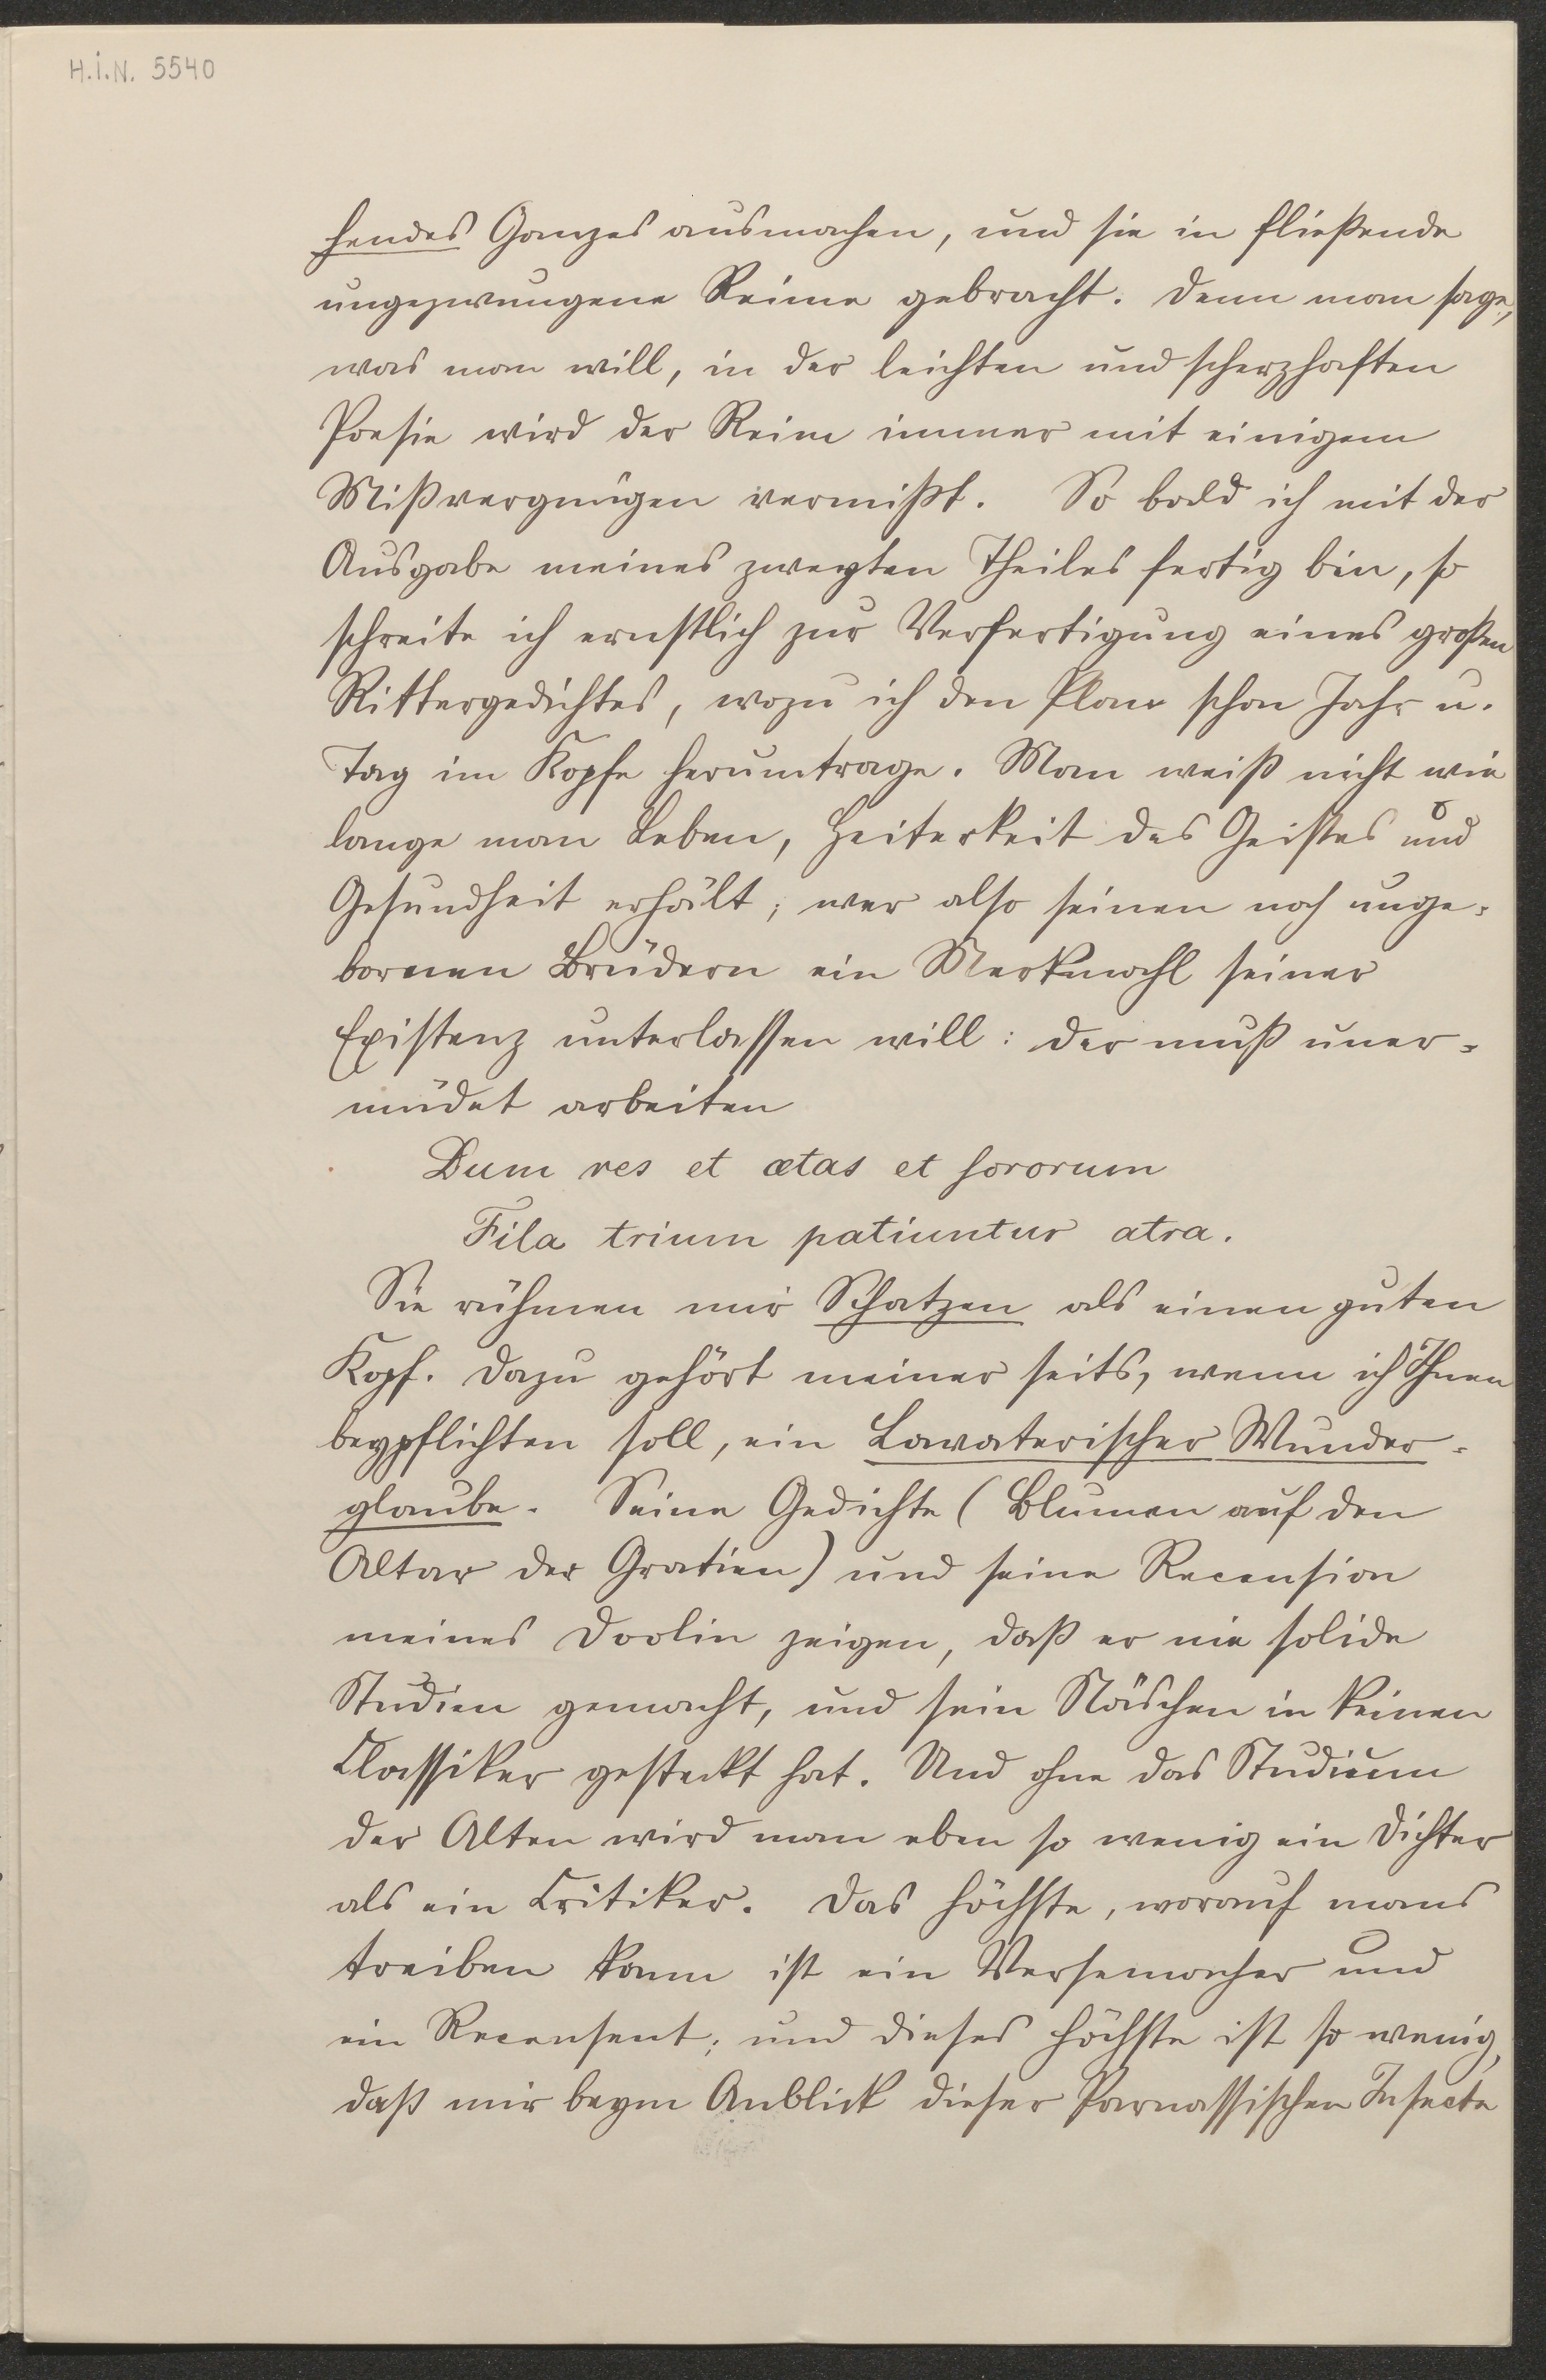 H.I.N. 5540
hendes Ganzes ausmachen, und sie in fließende
ungezwungene Reime gebracht. Denn man sage,
was man will, in der leichten und scherzhaften
Poesie wird der Reim immer mit einigem
Mißvergnügen vermißt. So bald ich mit der
Ausgabe meines zweyten Theiles fertig bin, so
schreite ich ernstlich zur Verfertigung eines großen
Rittergedichtes, wozu ich den Plan schon Jahr u.
Tag im Kopfe herumtrage. Man weiß nicht wie
lange man Leben, Heiterkeit des Geistes und
Gesundheit erhält; wer also seinen noch unge-
bornen Brüdern ein Merkmahl seiner
Existenz unterlassen will: der muß uner-
müdet arbeiten
Dum res et ætas et sororum
Fila trium patiuntur atra.
Sie rühmen mir Schatzen als einen guten
Kopf. Dazu gehört meiner seits, wenn ich Ihnen
beypflichten soll, ein Lavaterischer Wunder-
glaube. Seine Gedichte (Blumen auf den
Altar der Gratien) und seine Recension
meines Doolin zeigen, daß er nie solide
Studien gemacht, und sein Näschen in keinen
Classiker gesteckt hat. Und ohne das Studium
der Alten wird man eben so wenig ein Dichter
als ein Critiker. Das höchste, worauf mans
treiben kann ist ein Versemacher und
ein Recensent; und dieses höchste ist so wenig,
daß mir beym Anblick dieser Parnassischen Insecte